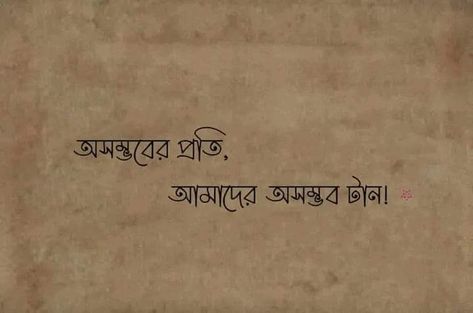 অসম্ভবের প্রতি,
আমাদের অসম্ভব টান!